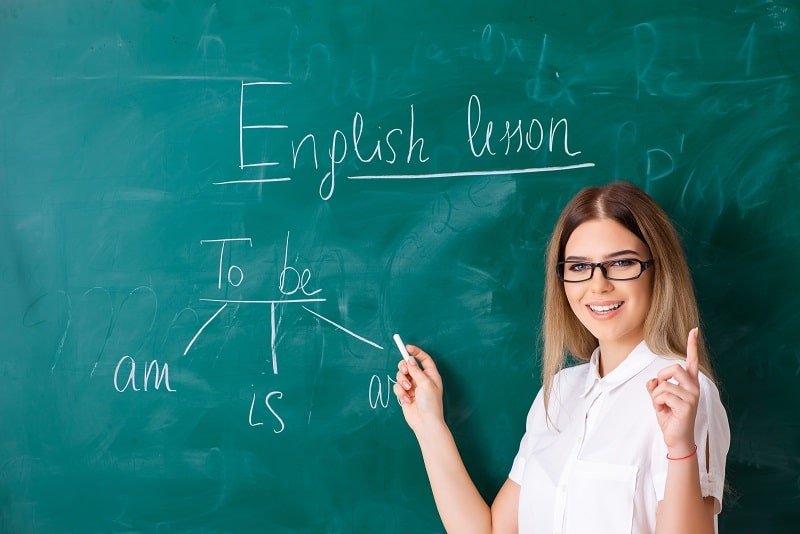 English lesson
To be
am is